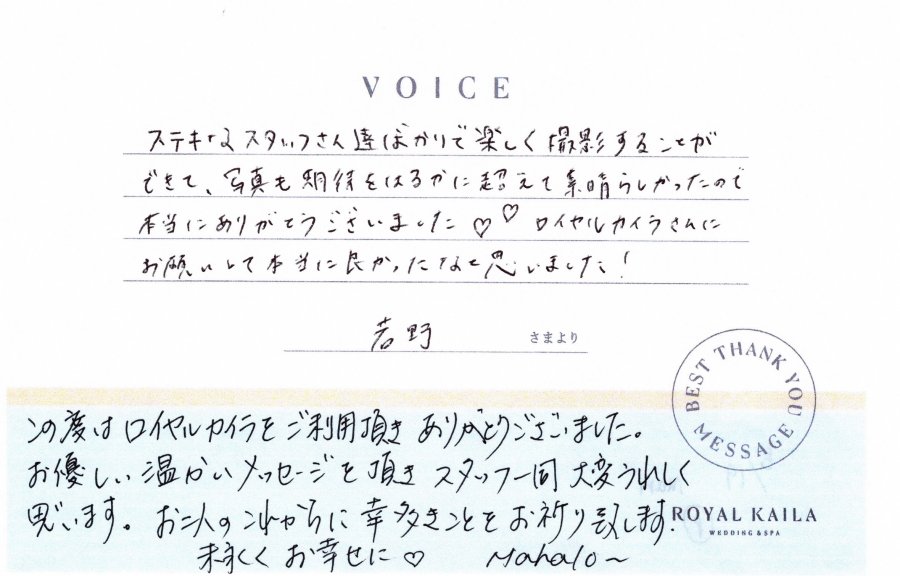 VOICE
ステキなスタッフさん達ばかりで楽しく撮影することが
できて、写真も期待をはるかに超えて素晴らしかったので
本当にありがとうございました♡♡ ロイヤルカイラさんに
お願いして本当に良かったなと思いました!
若野 さまより
BEST THANK YOU MESSAGE
この度はロイヤルカイラをご利用頂きありがとうございました。
お優しい温かいメッセージを頂きスタッフ一同大変うれしく
思います。お二人のこれからに幸多きことをお祈り致します。
末永くお幸せに♡ Mahalo~
ROYAL KAILA
WEDDING & SPA